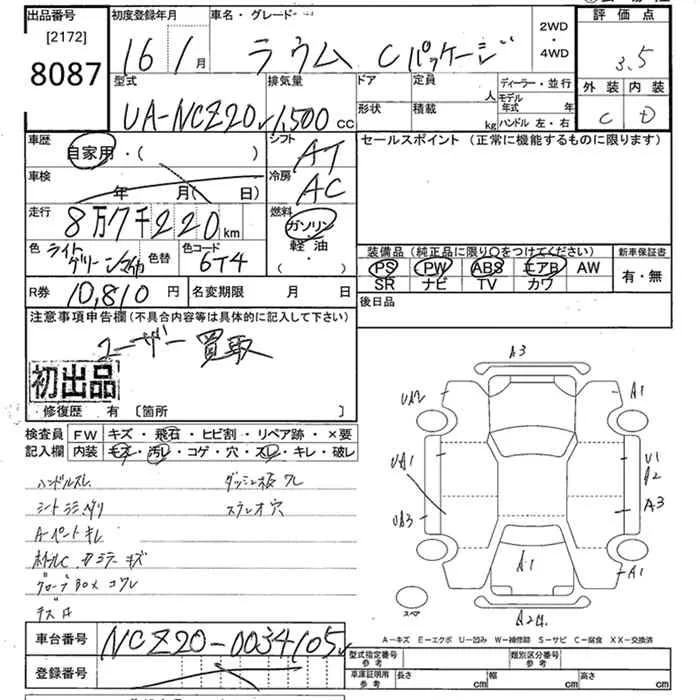 出品番号 初度登録年月 車名・グレード 2WD・4WD 評価点
[2172]
8087
16 1月 ラウム Cパッケージ 3.5
外装 内装
C D
型式 排気量 ドア 定員 人 ディーラー・並行
UA-NCZ20 1,500cc 形状 積載 kg モデル年式 年
ハンドル 左・右
車歴 シフト セールスポイント(正常に機能するものに限ります)
自家用・( ) AT
車検 冷房
年 月( 日) AC
走行 燃料
8万7千220km ガソリン
軽油
( ・ )
色 ライトグリーンM 色替 色コード 6T4
装備品(純正品に限り○をつけてください) 新車保証書
PS PW ABS エアB AW 有・無
SR ナビ TV カワ
R券 10,810円 名変期限 月 日
後日品
注意事項申告欄(不具合内容等は具体的に記入して下さい)
ユーザー買取
初出品
修復歴 有 〔箇所 〕
検査員 FW キズ・飛石・ヒビ割・リペア跡・×要
記入欄 内装 キズ・汚レ・コゲ・穴・スレ・キレ・破レ
ハンドルスレ ダッシュ板ワレ
ステレオ穴
Aペートキレ
ホイルC カミラーキズ
グローブBOXコワレ
A3
UA2 A1
UA1 U1
A2
UA3 A3
A1 A1
A2
スペア
A−キズ E−エクボ U−凹み W−補修跡 S−サビ C−腐食 XX−交換済
車台番号 NCZ20-0034105
型式指定番号 参考 類別区分番号 参考
登録番号
車庫証明用 参考 長さ cm 幅 cm 高さ cm